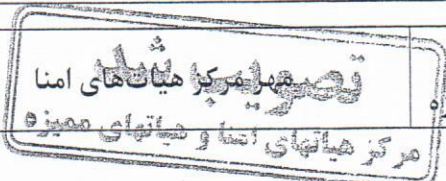 تصویب شد
مهر مرکز هیات‌های امنا
مرکز هیاتهای امنا و هیاتهای ممیزه